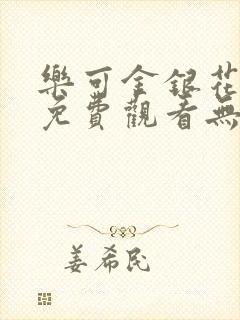 樂可金銀花
免費觀看無
姜希民